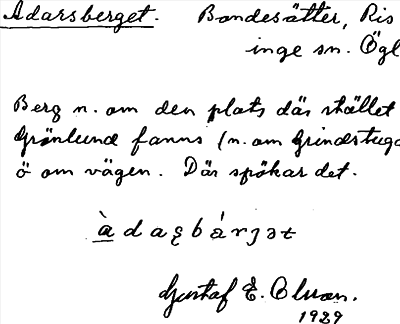 Adarsberget. Bondesätter, Ris
inge sn. Ögl
Berg n. om den plats där stället
Grönlund fanns (n. om Grindstuga
ö om vägen. Där spökar det.
Gustaf E. Olsson.
1929